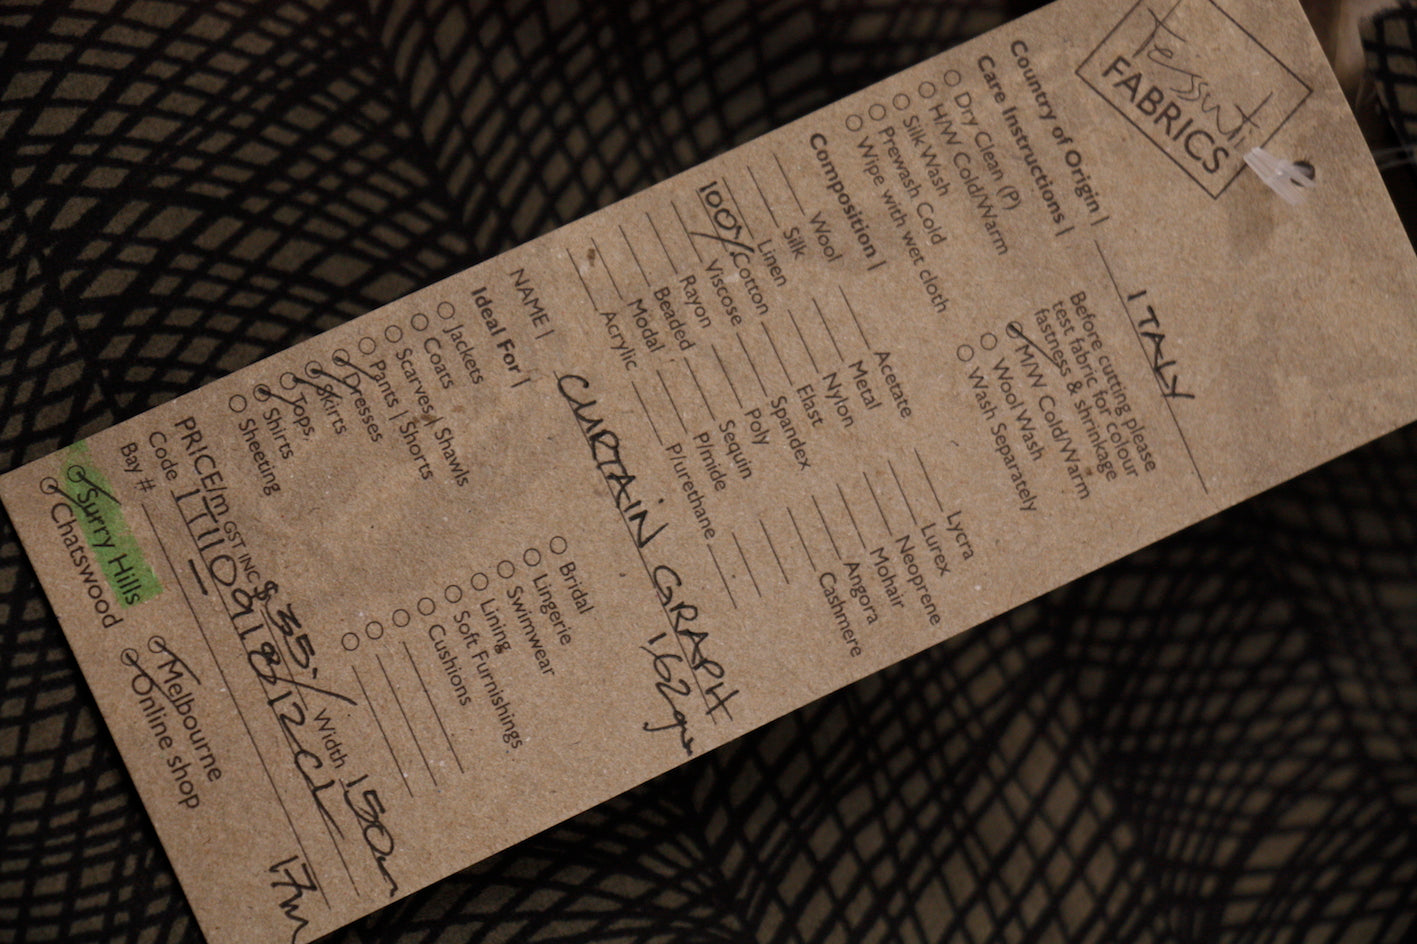 Tessuti
FABRICS
Country of Origin | ITALY
Care Instructions |
Dry Clean (P)
H/W Cold/Warm
Silk Wash
Prewash Cold
Wipe with wet cloth
Before cutting please
test fabric for colour
fastness & shrinkage
M/W Cold/Warm
Wool Wash
Wash Separately
Composition |
Wool
Silk
Linen
100% Cotton
Viscose
Rayon
Beaded
Modal
Acrylic
Acetate
Metal
Nylon
Elast
Spandex
Poly
Sequin
P/mide
P/urethane
Lycra
Lurex
Neoprene
Mohair
Angora
Cashmere
NAME | CURTAIN GRAPH
162gm
Ideal For |
Jackets
Coats
Scarves | Shawls
Pants | Shorts
Dresses
Skirts
Tops,
Shirts
Sheeting
Bridal
Lingerie
Swimwear
Lining
Soft Furnishings
Cushions
PRICE/m GST INC $35-/ Width 150m
Code
Bay # 17m
Surry Hills
Chatswood
Melbourne
Online shop